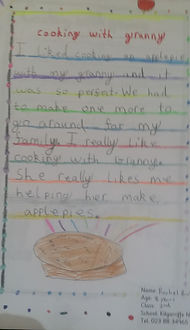 cooking with granny
I liked cooking an applepie
with my granny and it
was so perfect. We had
to make one more to
go around for my
family. I really like
cooking with Granny.
She really likes me
helping her make
applepies.
Name: Rachel
Age: 8
Class
School: 
Tel: 028